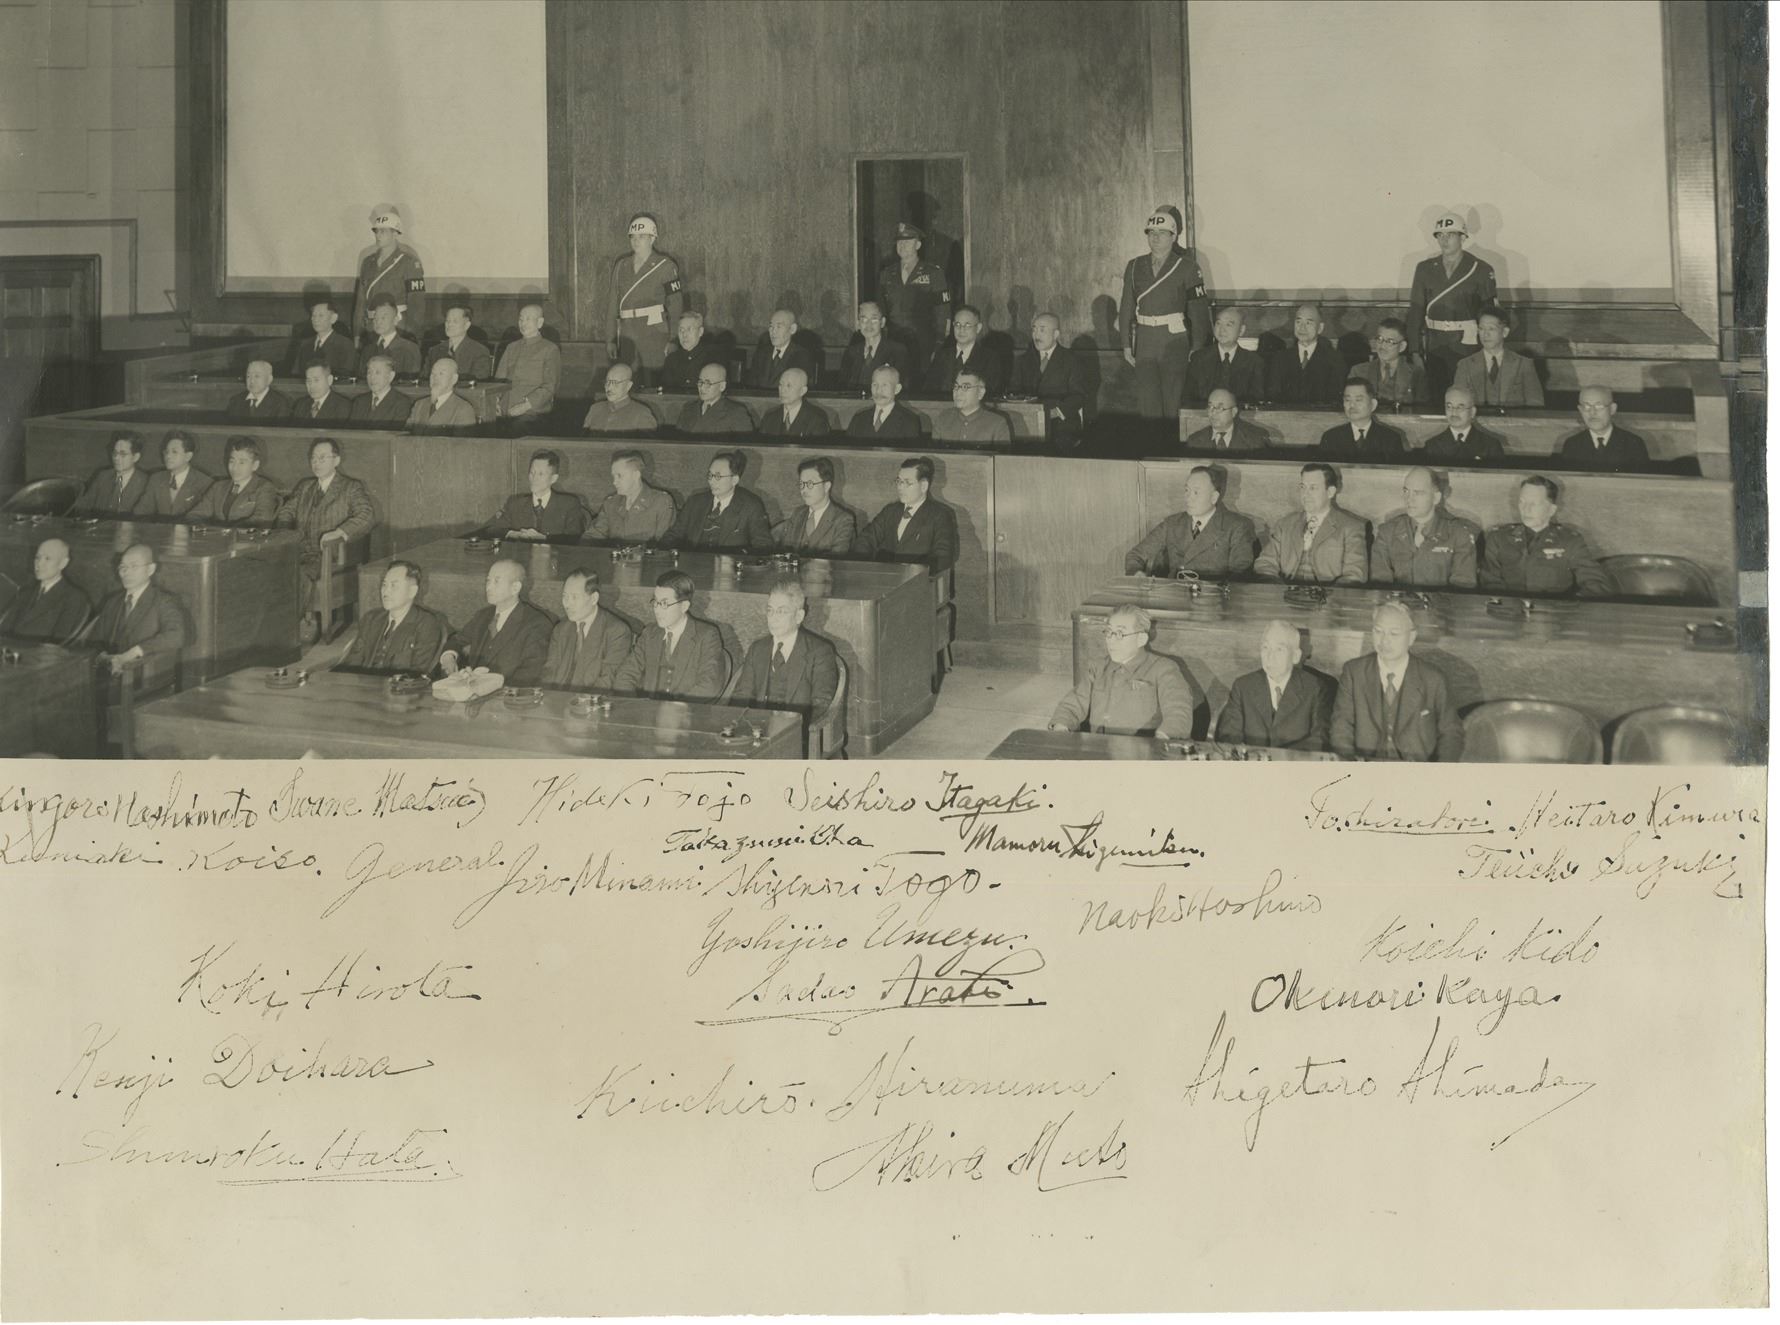 MP
MP
MP
MP
MP
Kingoro Hashimoto Iwane Matsui Hideki Tojo Seishiro Itagaki. To. Shiratori. Heitaro Kimura
Kuniaki Koiso. General Jiro Minami Takazumi Oka Mamoru Shigemitsu. Teiichi Suzuki
Shigenori Togo-
Naoki Hoshino
Yoshijiro Umezu.
Koichi Kido
Koki Hirota
Sadao Araki.
Okinori Kaya.
Kenji Doihara
Kiichiro. Hiranuma
Shigetaro Shimada
Shunroku Hata.
Akira Muto